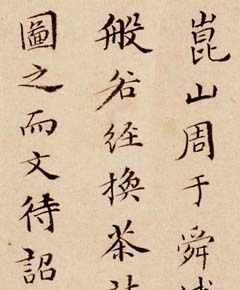 崑山周于舜
般若經換茶
圖之而文待詔